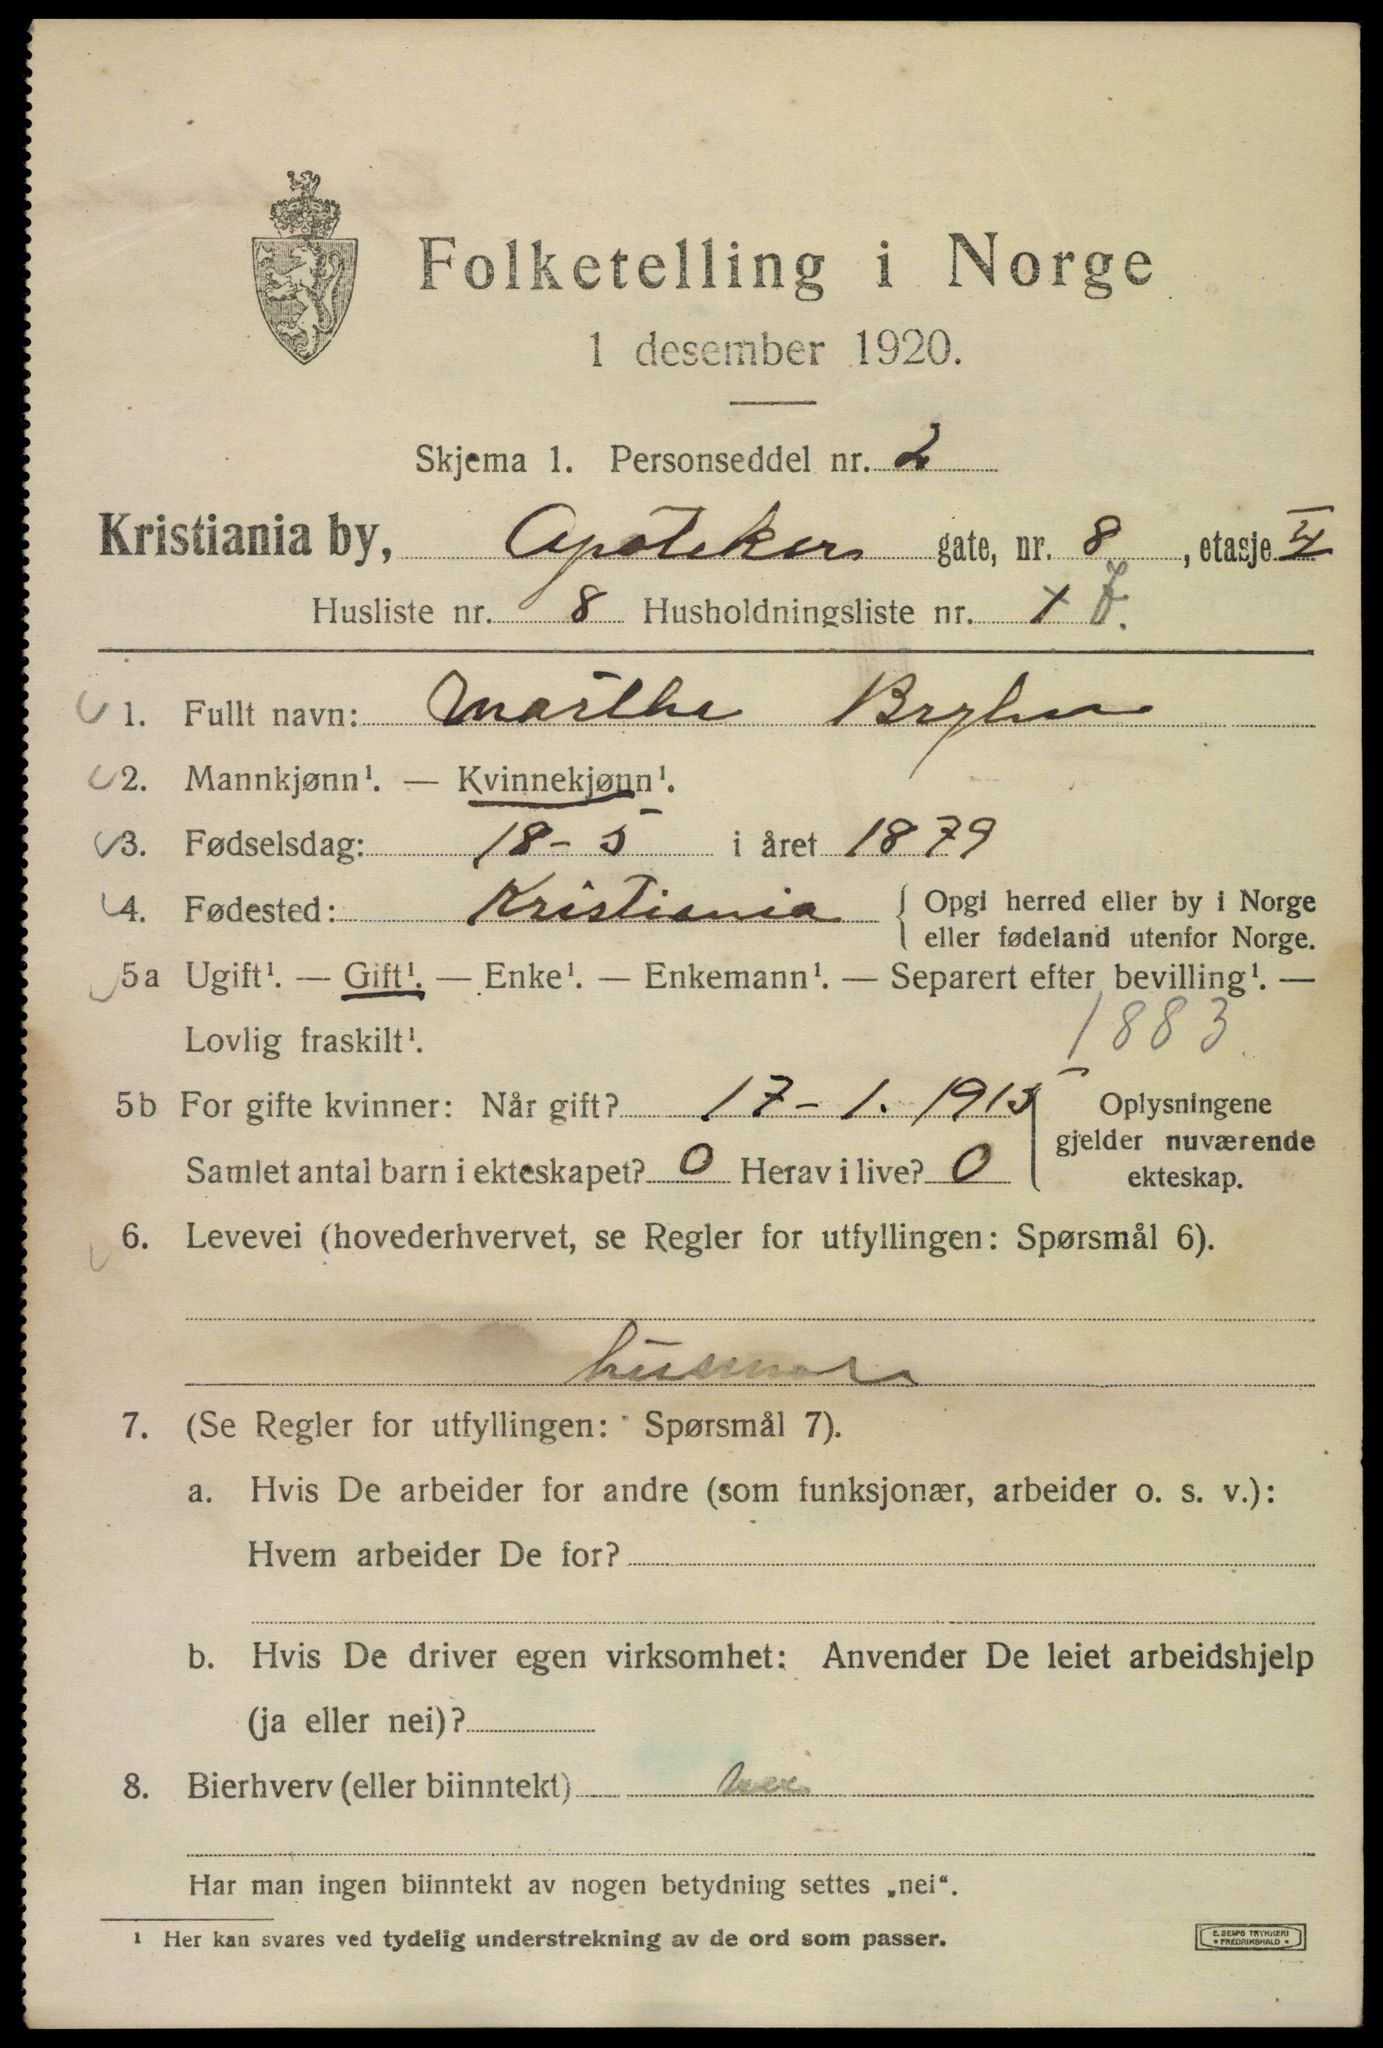 Folketelling i Norge
1 desember 1920.
Skjema 1. Personseddel nr. 2
Kristiania by, Apoteker gate, nr. 8, etasje
Husliste nr. 8 Husholdningsliste nr. 1
1. Fullt navn: Marthe
2. Mannkjønn¹. — Kvinnekjønn¹.
3. Fødselsdag: 18-5 i året 1879
4. Fødested: Kristiania { Opgi herred eller by i Norge
eller fødeland utenfor Norge.
5a Ugift¹. — Gift¹. — Enke¹. — Enkemann¹. — Separert efter bevilling¹. —
Lovlig fraskilt¹.
1883
5b For gifte kvinner: Når gift? 17-1. 1915
Samlet antal barn i ekteskapet? 0 Herav i live? 0
Oplysningene
gjelder nuværende
ekteskap.
6. Levevei (hovederhvervet, se Regler for utfyllingen: Spørsmål 6).
husmor
7. (Se Regler for utfyllingen: Spørsmål 7).
a. Hvis De arbeider for andre (som funksjonær, arbeider o. s. v.):
Hvem arbeider De for?
b. Hvis De driver egen virksomhet: Anvender De leiet arbeidshjelp
(ja eller nei)?
8. Bierhverv (eller biinntekt) nei
Har man ingen biinntekt av nogen betydning settes „nei“.
¹ Her kan svares ved tydelig understrekning av de ord som passer.
E. SEM'S TRYKKERI
• FREDRIKSHALD •